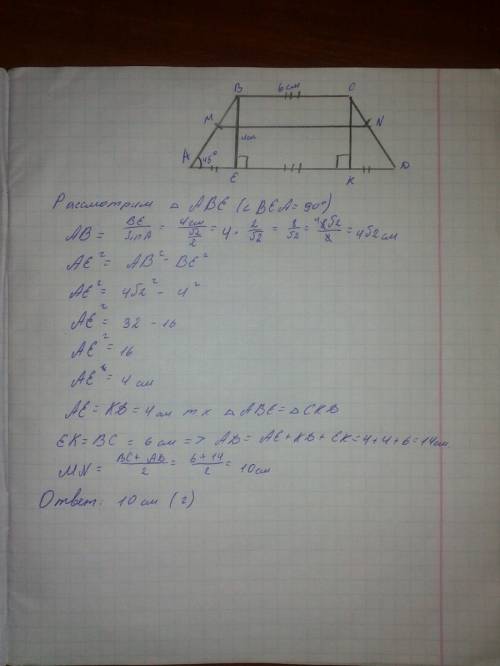 B 6 см C
M N
4см
A 45° E K D
Рассмотрим △ ABE (∠ BEA = 90°)
AB = BE/sin A = 4см/(√2/2) = 4 · 2/√2 = 8/√2 = 8√2/2 = 4√2 см
AE² = AB² - BE²
AE² = 4√2² - 4²
AE² = 32 - 16
AE² = 16
AE = 4 см
AE = KD = 4 см т к △ ABE = △ CKD
EK = BC = 6 см => AD = AE + KD + EK = 4 + 4 + 6 = 14 см
MN = BC + AD/2 = 6 + 14/2 = 10 см
Ответ: 10 см (2)